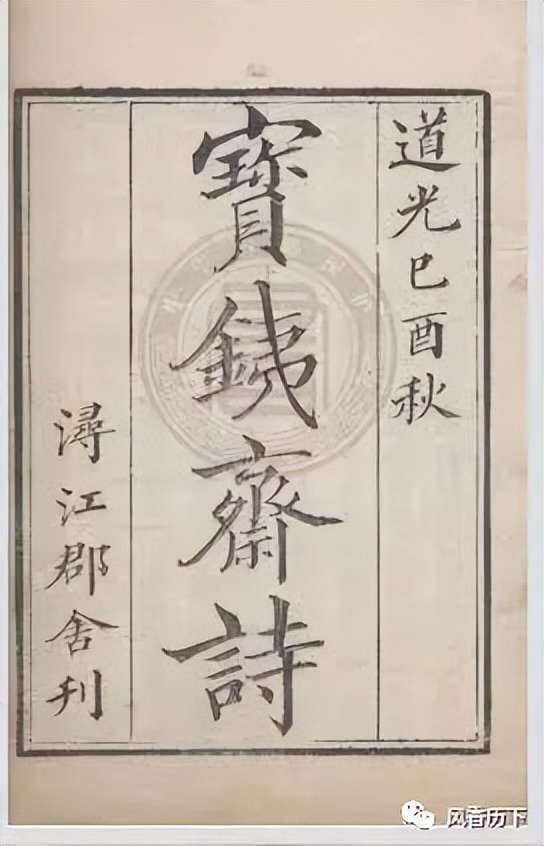 道光己酉秋
寶銕齋詩
潯江郡舍刊
风音历下